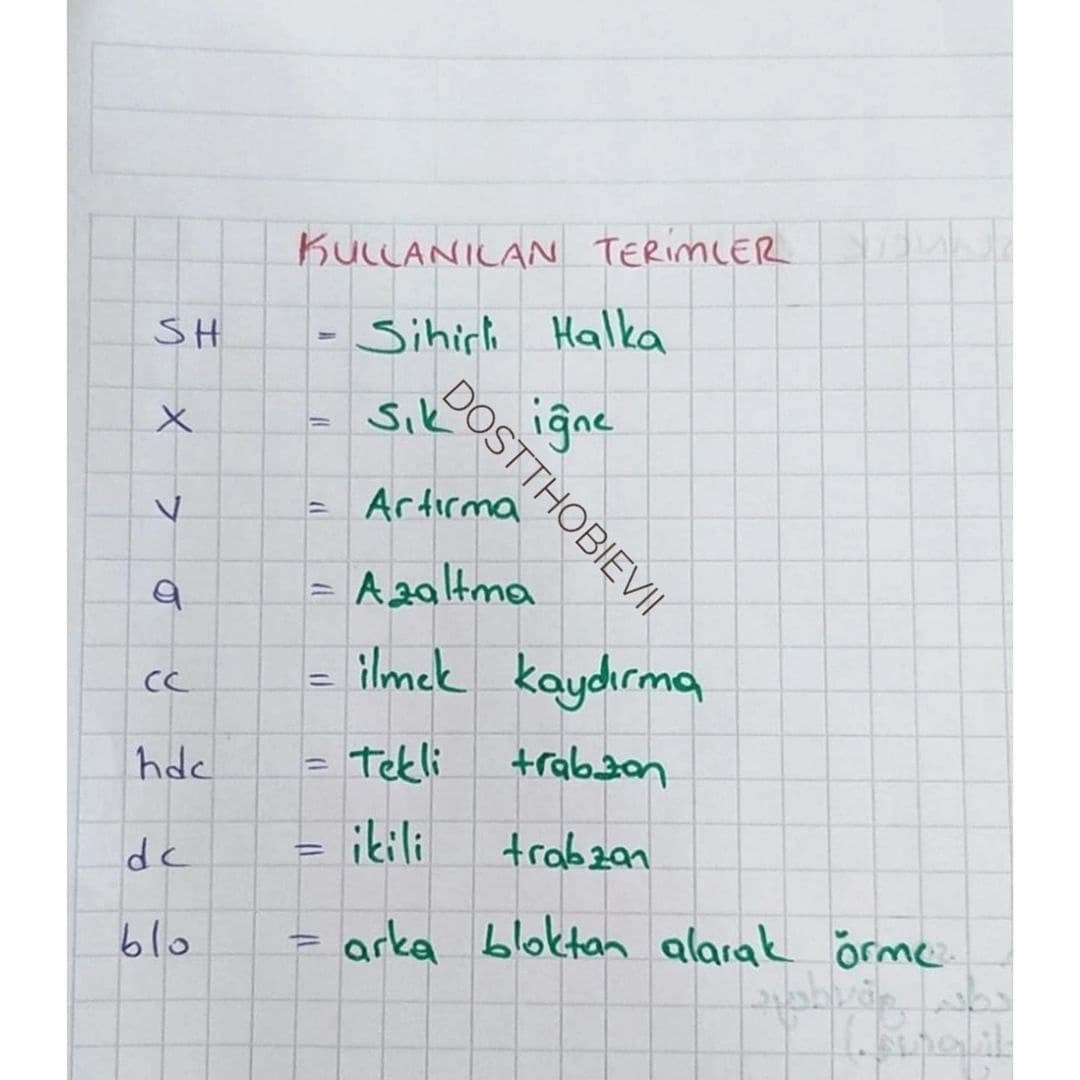 KULLANILAN TERİMLER
SH = Sihirli Halka
X = Sık iğne
V = Artırma
DOSTTHOBIEVII
a = Azaltma
cc = ilmek kaydırma
hdc = Tekli trabzan
dc = ikili trabzan
blo = arka bloktan alarak örme